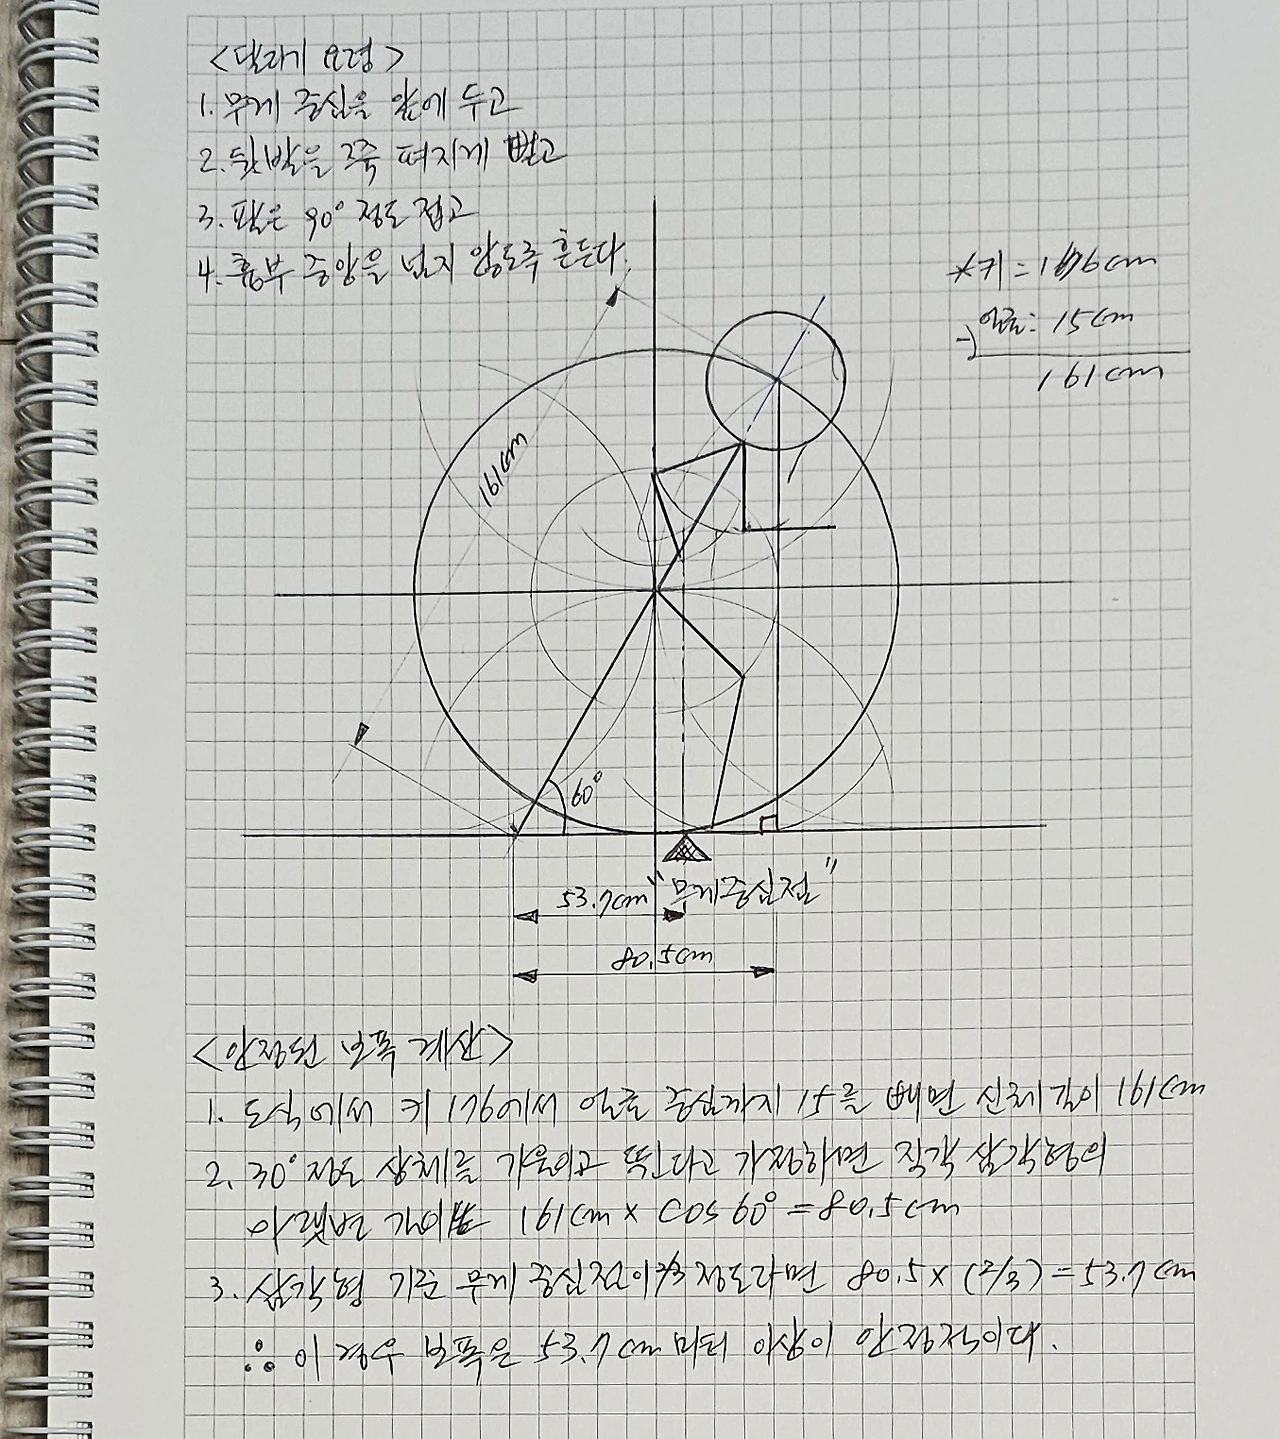 <달리기 요령>
1. 무게 중심을 앞에 두고
2. 뒷발은 쭉 펴지게 뻗고
3. 팔은 90° 정도 접고
4. 흉부 중앙을 넘지 않도록 흔든다.
*키 = 176cm
-) 얼굴: 15cm
161cm
161cm
60°
53.7cm "무게중심점"
80.5cm
<안정된 보폭 계산>
1. 도식에서 키 176에서 얼굴 중심까지 15를 빼면 신체길이 161cm
2. 30° 정도 상체를 기울이고 뛴다고 가정하면 직각 삼각형의
아랫변 길이는 161cm × cos 60° = 80.5cm
3. 삼각형 기준 무게 중심점이 2/3 정도라면 80.5 × (2/3) = 53.7cm
∴ 이 경우 보폭은 53.7cm 미터 이상이 안정적이다.